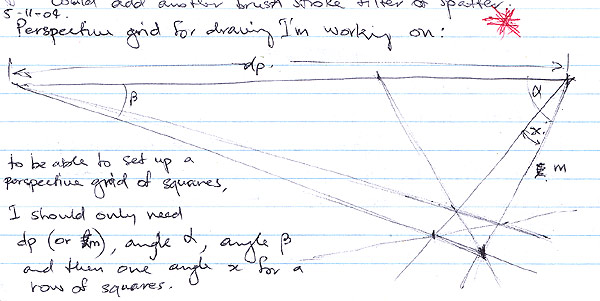 Could add another brush stroke filter or spatter.
5-11-04.
Perspective grid for drawing I'm working on:
dp.
β
α
x
m
to be able to set up a
perspective grid of squares,
I should only need
dp (or m), angle α, angle β
and then one angle x for a
row of squares.